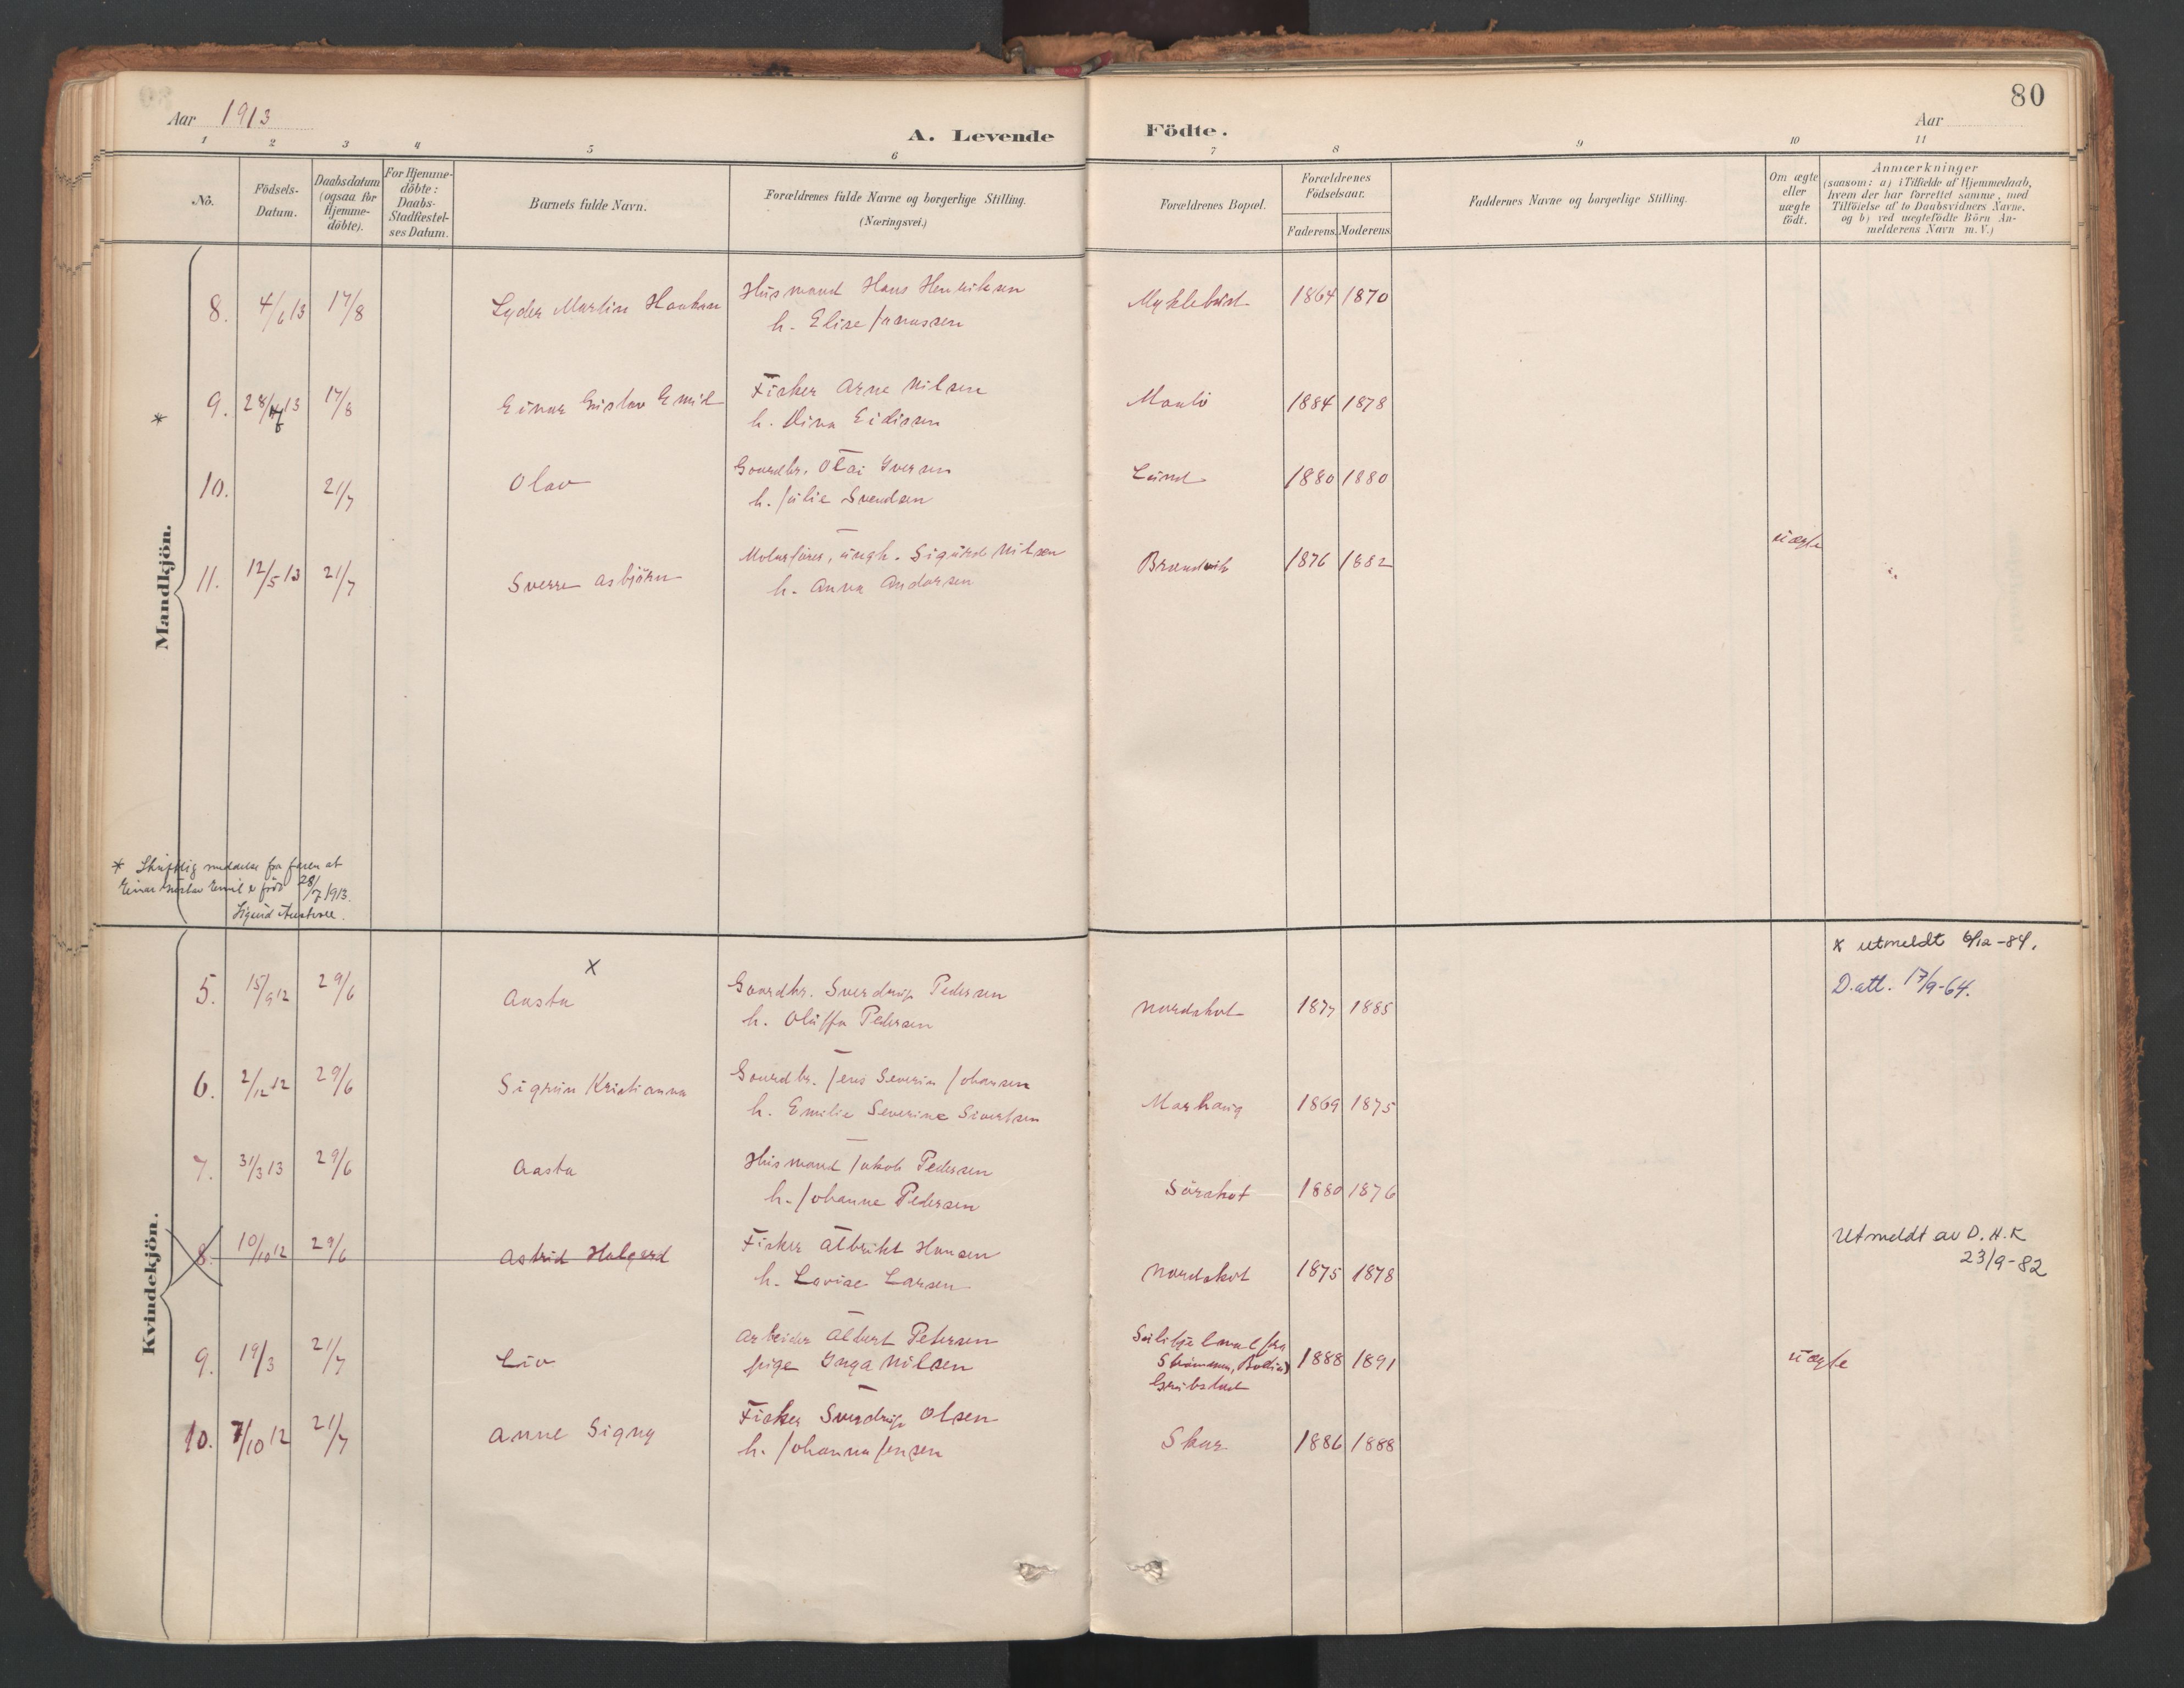 80
Aar 1913
A. Levende Födte.
Aar
1 2 3 4 5 6 7 8 9 10 11
No.
Födsels-
Datum.
Daabsdatum
(ogsaa for
Hjemme-
döbte).
For Hjemme-
döbte:
Daabs-
Stadfæstel-
ses Datum.
Barnets fulde Navn.
Forældrenes fulde Navne og borgerlige Stilling.
(Næringsvei.)
Forældrenes Bopæl.
Forældrenes
Födselsaar.
Faderens. Moderens.
Faddernes Navne og borgerlige Stilling.
Om ægte
eller
uægte
födt.
Anmærkninger
(saasom: a) i Tilfælde af Hjemmedaab,
hvem der har forrettet samme, med
Tilföielse af to Daabsvidners Navne,
og b) ved uægtefödte Börn An-
melderens Navn m. V.)
Mandkjön.
8. 4/6 13 17/8 Lyder Martin Husmand Hans Henriksen Myklebust 1864 1870
h. Elise Janussen
* 9. 28/7 13 17/8 Einar Gustav Emil Fisker Arne Nilsen 1884 1878
h. Dina Eidissen
10. 21/7 Olav Gaardbr. Otai Iversen Lund 1880 1880
h. Julie Svendsen
11. 12/5 13 21/7 Sverre Asbjörn Motorförer, ungk. Sigurd Nilsen Brændvik 1876 1882 uægte
h. Anna Andersen
* Skriftlig meddelse fra faren at
Einar Gustav Emil er född 28/7 1913.
Sigurd
Kvindekjön.
x utmeldt 6/12-84.
5. 15/9 12 29/6 Aasta x Gaardbr. Sverdrup Pedersen Nordskot 1877 1885 D.att. 17/9-64.
h. Oluffa Pedersen
6. 2/12 12 29/6 Sigrun Kristianna Gaardbr. Jens Severin Johansen Marhaug 1869 1875
h. Emilie Severine Sivertsen
7. 31/3 13 29/6 Aasta Husmand Jakob Pedersen Sörskot 1880 1876
h. Johanne Pedersen
8. 10/10 12 29/6 Astrid Halgerd Fisker Albrikt Hansen Nordskot 1875 1878 Utmeldt av D.H.K
23/9-82
h. Lovise Larsen
9. 19/3 21/7 Liv Arbeider Albert Petersen Sulitjelma fra
Strömmen, Bodin) 1888 1891 uægte
pige Inga Nilsen Grubstad
10. 7/10 12 21/7 Anne Signy Fisker Sverdrup Olsen Skar 1886 1888
h. Johanna Jensen